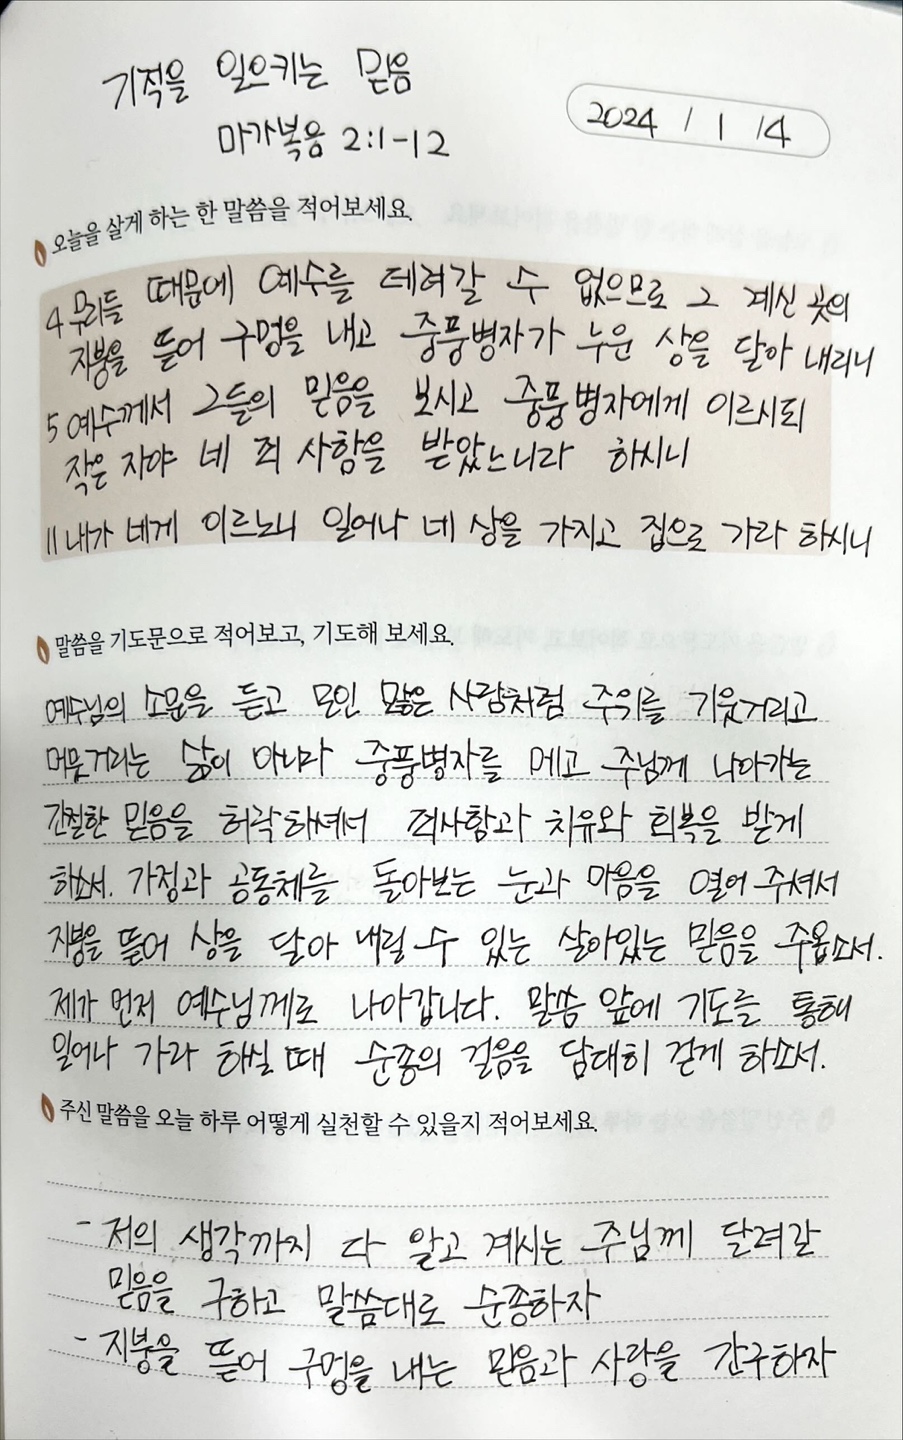 기적을 일으키는 믿음
마가복음 2:1-12
2024 / 1 / 4
오늘을 살게 하는 한 말씀을 적어보세요.
4 무리들 때문에 예수를 데려갈 수 없으므로 그 계신 곳의
지붕을 뜯어 구멍을 내고 중풍병자가 누운 상을 달아 내리니
5 예수께서 그들의 믿음을 보시고 중풍병자에게 이르시되
작은 자야 네 죄 사함을 받았느니라 하시니
11 내가 네게 이르노니 일어나 네 상을 가지고 집으로 가라 하시니
말씀을 기도문으로 적어보고, 기도해 보세요.
예수님의 소문을 듣고 모인 많은 사람처럼 주위를 기웃거리고
머뭇거리는 삶이 아니라 중풍병자를 메고 주님께 나아가는
간절한 믿음을 허락하셔서 죄사함과 치유와 회복을 받게
하소서. 가정과 공동체를 돌아보는 눈과 마음을 열어 주셔서
지붕을 뜯어 상을 달아 내릴 수 있는 살아있는 믿음을 주옵소서.
제가 먼저 예수님께로 나아갑니다. 말씀 앞에 기도를 통해
일어나 가라 하실 때 순종의 걸음을 담대히 걷게 하소서.
주신 말씀을 오늘 하루 어떻게 실천할 수 있을지 적어보세요.
- 저의 생각까지 다 알고 계시는 주님께 달려갈
믿음을 구하고 말씀대로 순종하자
- 지붕을 뜯어 구멍을 내는 믿음과 사랑을 간구하자